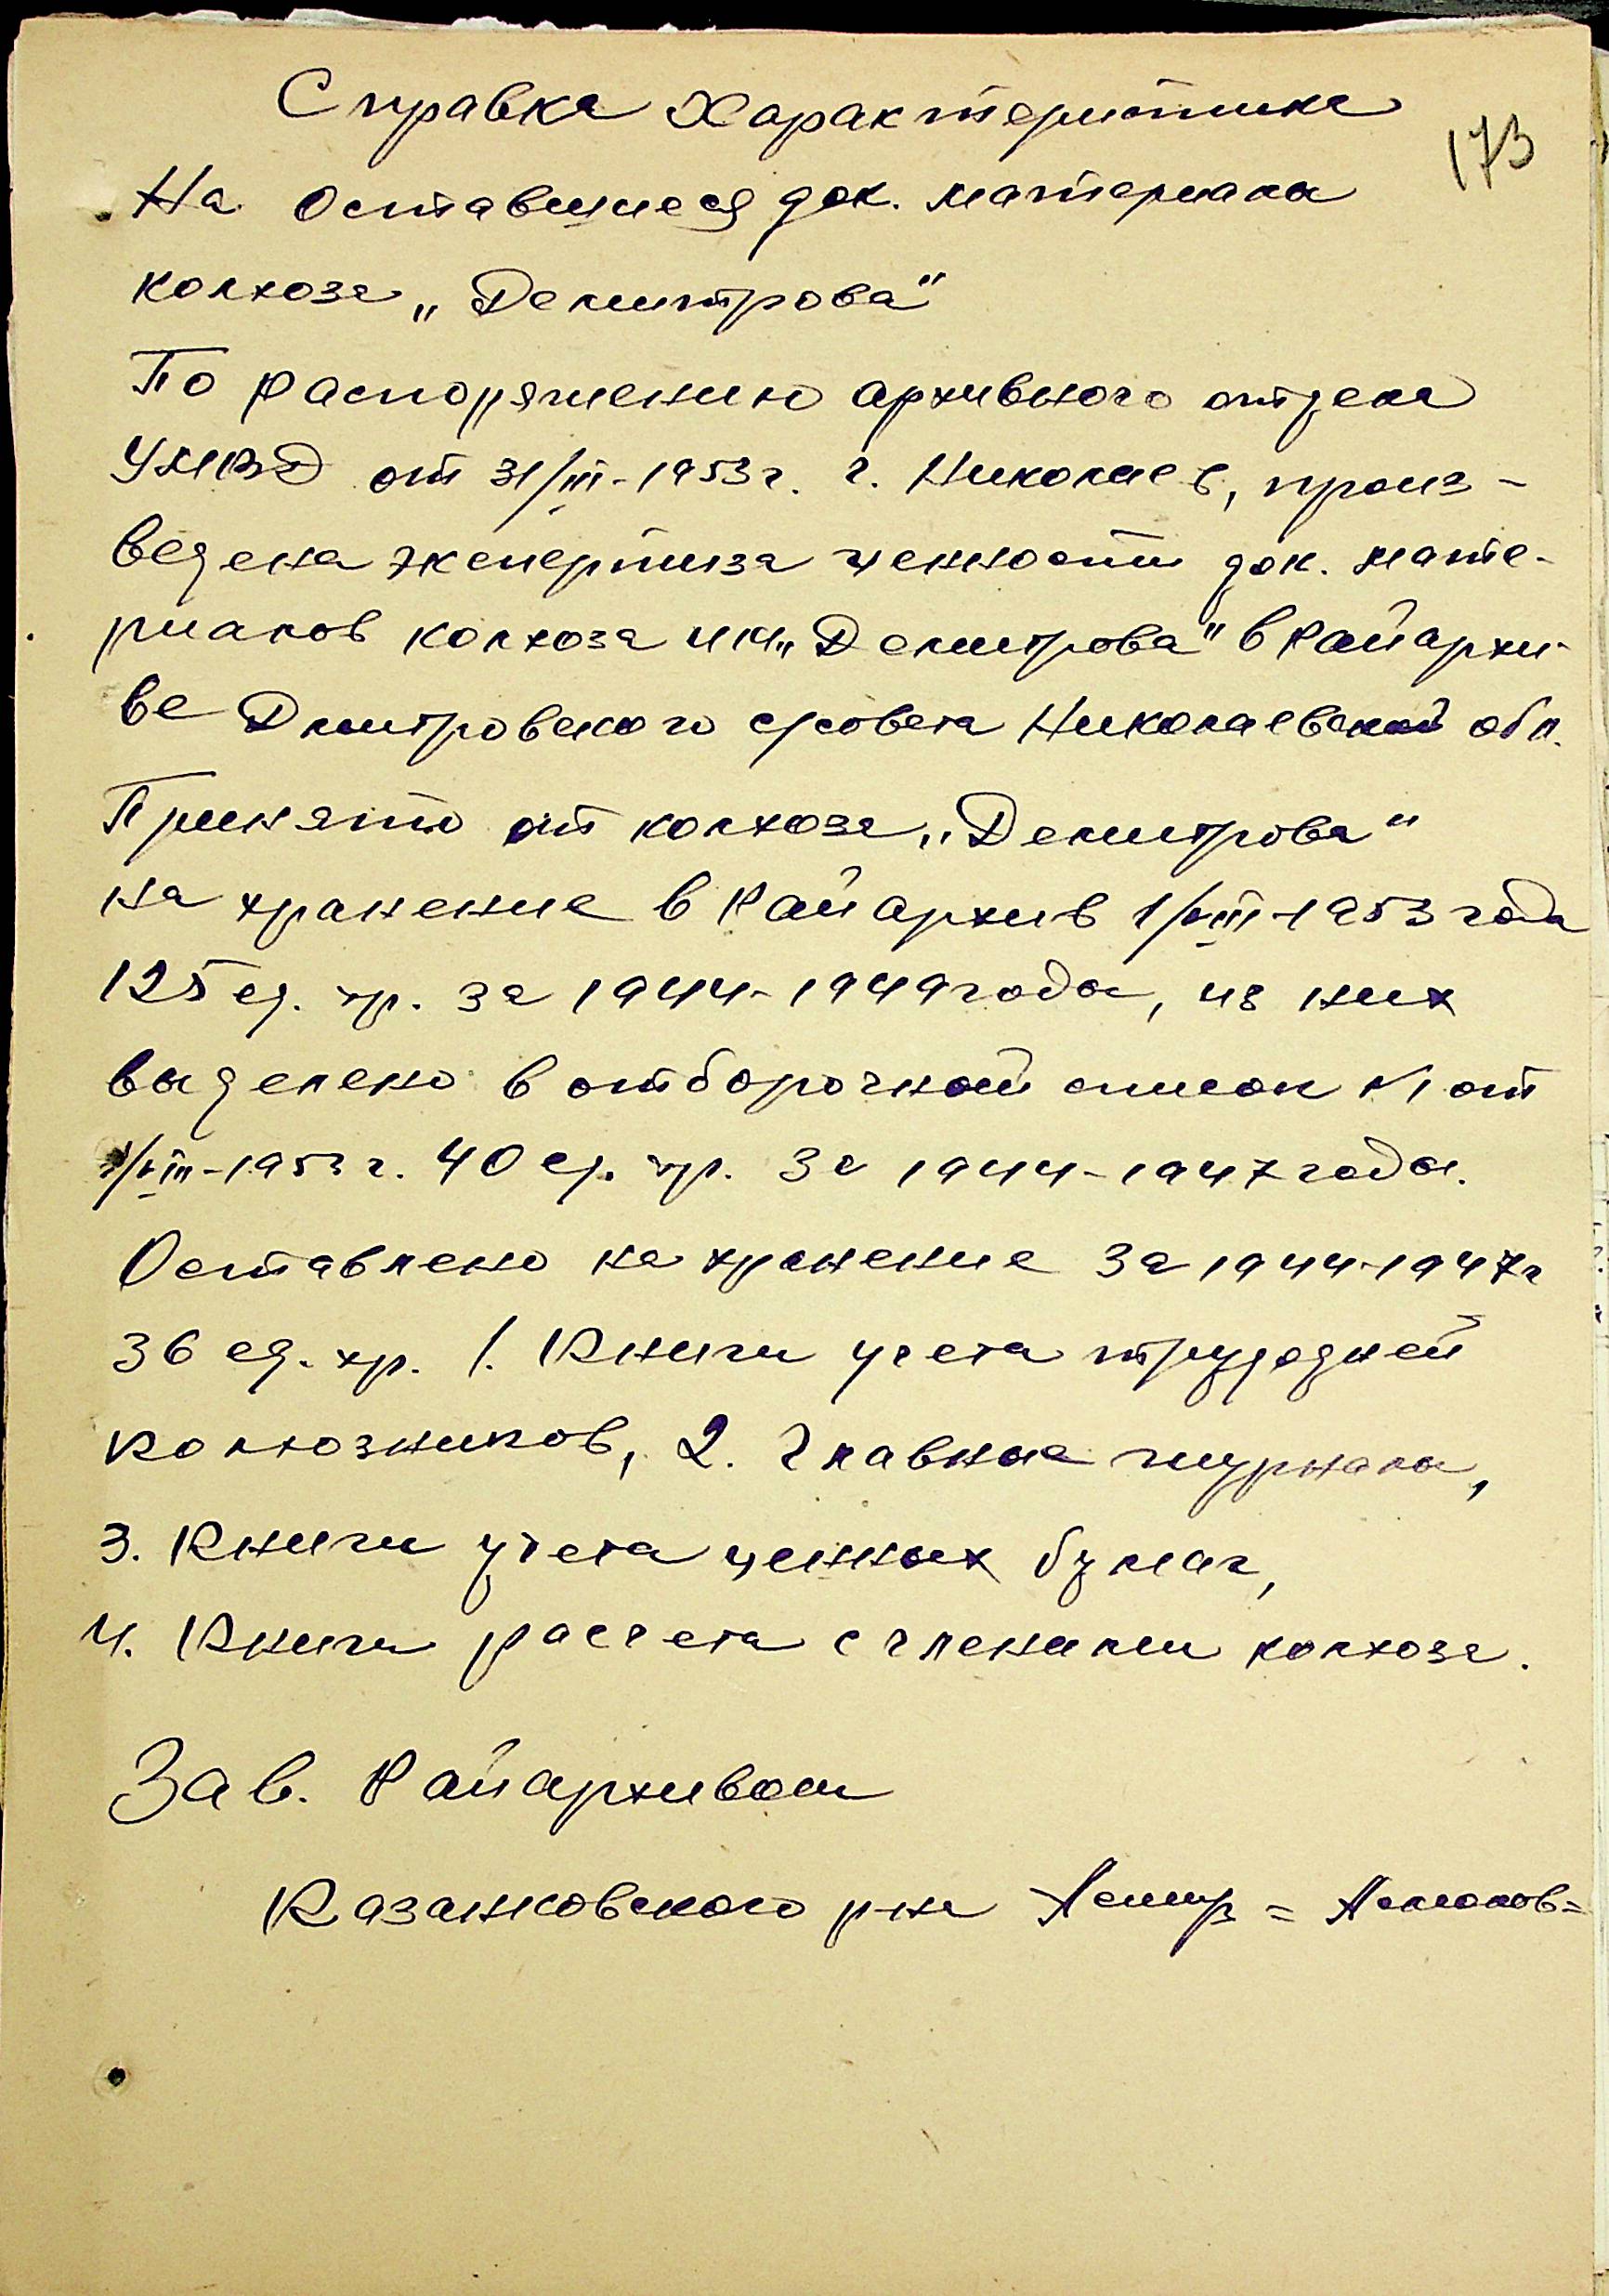 Справка Характеристика
173
На Оставшиеся док. материалы
колхоза „Демитрова"
По распоряжению архивного отдела
УМВД от 31/III-1953 г. г. Николаев, произ-
ведена экспертиза ценности док. мате-
риалов колхоза им „Демитрова" в Райархи-
ве Дмитровского с/совета Николаевской обл.
Принято от колхоза „Демитрова"
на хранение в Райархив 1/VIII-1953 года
125 ед. хр. за 1944-1949 годы, из них
выделено в отборочной список №1 от
1/VIII-1953 г. 40 ед. хр. за 1944-1947 годы.
Оставлено на хранение за 1944-1947 г
36 ед. хр. 1. Книги учета трудодней
колхозников, 2. Главные журналы,
3. Книги учета ценных бумаг,
4. Книги расчета с членами колхоза.
Зав. Райархивом
Казанковского р-на